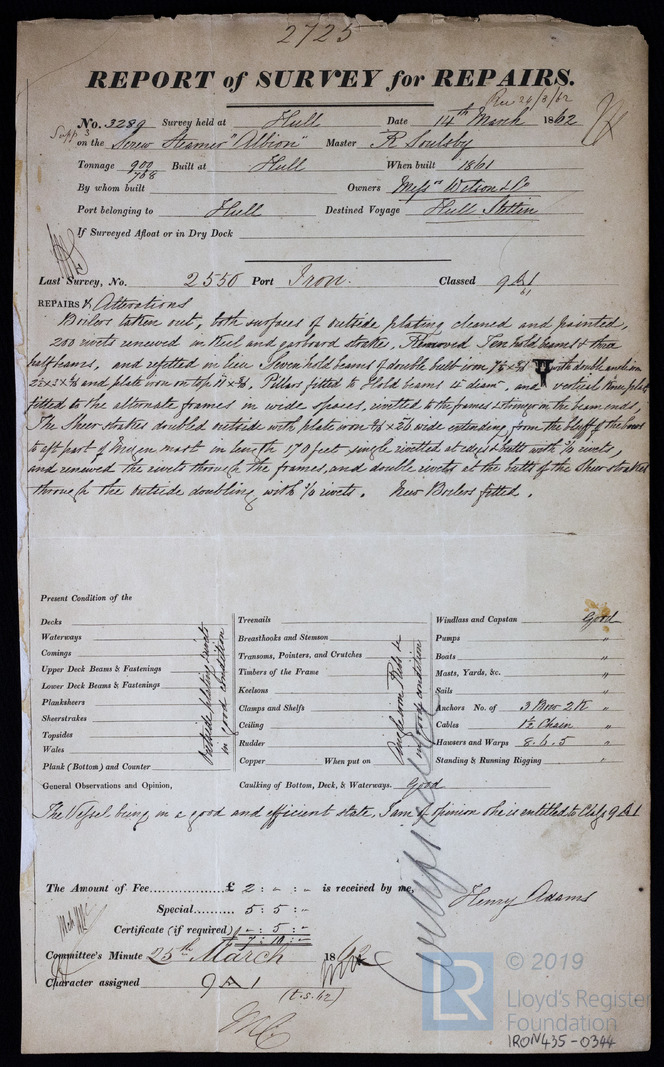 2725
REPORT of SURVEY for REPAIRS.
Rec 24/3/62
No. 3289 Survey held at Hull Date 14th March 1862
on the Screw Steamer "Albion" Master R Soulsby
Tonnage 900/768 Built at Hull When built 1861
By whom built Owners Messrs Wilson & Co
Port belonging to Hull Destined Voyage Hull Stettin
If Surveyed Afloat or in Dry Dock
Last Survey, No. 2550 Port Iron. Classed 9 A 1
61
REPAIRS & Alterations
Boilers taken out, both surfaces of outside plating cleaned and painted,
200 rivets renewed in Keel and garboard strakes, Removed Ten hold beams & three
half beams, and refitted in lieu Seven hold beams of double bult iron with double angle iron
and plate iron on top, Pillars fitted to Hold beams 4 diamr, and vertical Knee plates
fitted to the alternate frames in wide spaces, rivetted to the frames & stringers on the beam ends,
The Sheer strakes doubled outside with plate iron wide extending from the bluff of the bows
to aft part of Mizen mast in length 170 feet single rivetted at edges & butts with rivets,
and renewed the rivets through the frames, and double rivets at the butts of the Sheer strakes
through the outside doubling with rivets. New Boilers fitted.
Present Condition of the
Decks
Waterways
Comings
Upper Deck Beams & Fastenings
Lower Deck Beams & Fastenings
Planksheers
Sheerstrakes
Topsides
Wales
Plank (Bottom) and Counter
Outside plating rivets
in good condition
Treenails
Breasthooks and Stemson
Transoms, Pointers, and Crutches
Timbers of the Frame
Keelsons
Clamps and Shelfs
Ceiling
Rudder
Copper When put on
Angle iron Ribs &c
in good condition
Windlass and Capstan Good
Pumps "
Boats "
Masts, Yards, &c. "
Sails "
Anchors No. of 3 Bow 2 K "
Cables 1½ Chain "
Hawsers and Warps 8.6.5 "
Standing & Running Rigging "
General Observations and Opinion, Caulking of Bottom, Deck, & Waterways. Good
The Vessel being in a good and efficient state, I am of opinion she is entitled to Class 9 A 1
The Amount of Fee £ 2 : - : - is received by me,
Henry Adams
Special 5 : 5 : -
Certificate (if required) - : 5 : -
7 : 10 : -
Committee's Minute 25th March 1862
Character assigned 9 A 1
(t.s. 62)
© 2019
LR
Lloyd's Register
Foundation
IRON435-0344